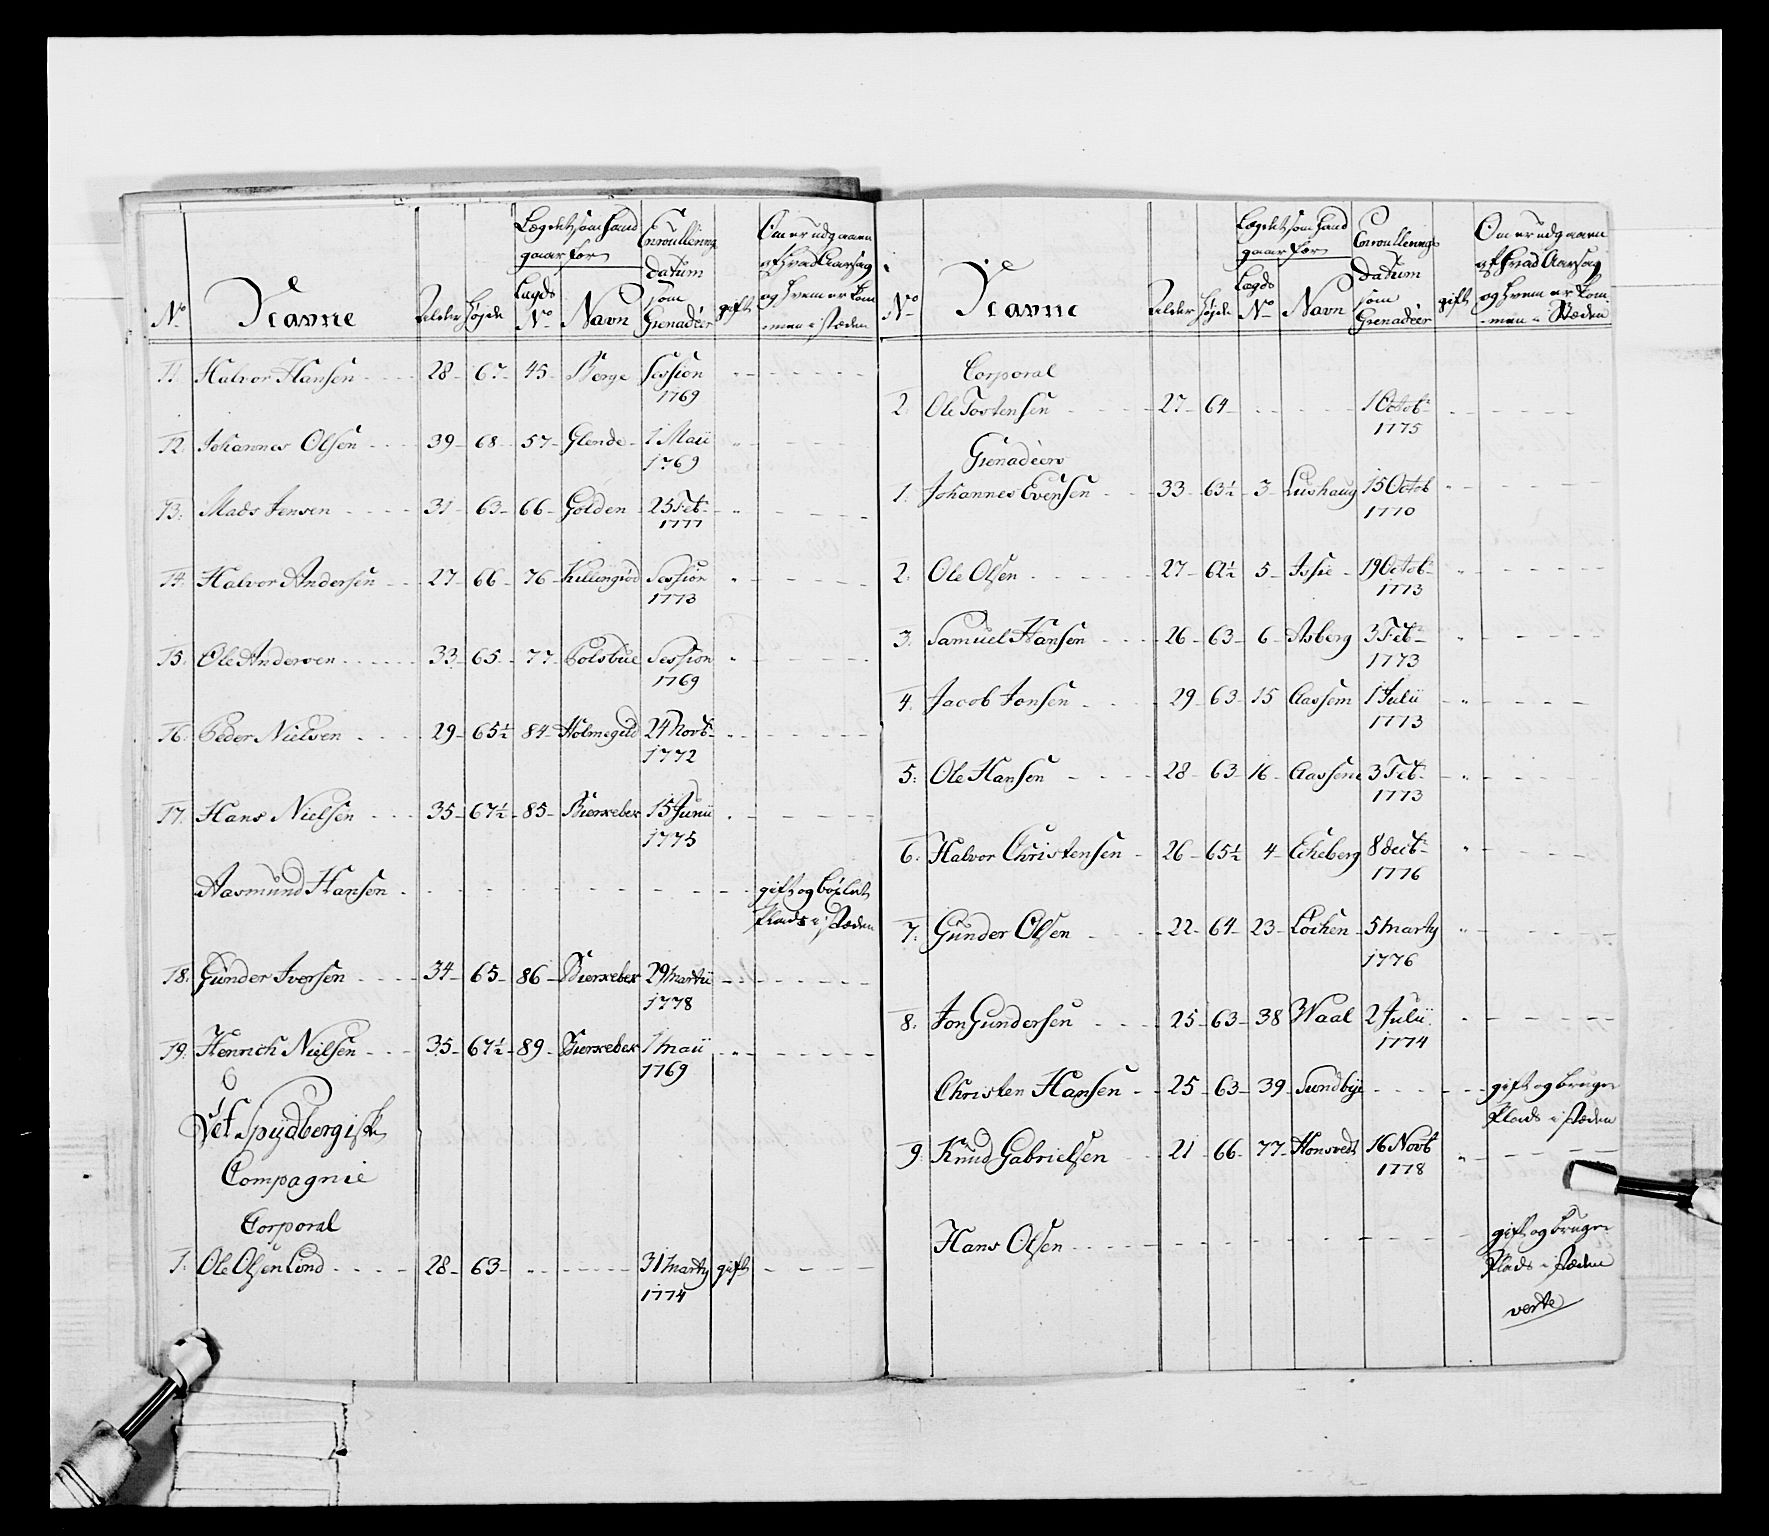 No Navne Alder Høyde Lægdet som hand gaar for Lægds No Navn Enroullerings datum som Grenadéer gift Om er udgaaen af hvad Aarsag og hvem er kommen i Stæden
11. Halvor Hansen 28 67 45 Berge Session
1769
12. Johannes Olsen 39 68 57 Glende 1 Maii
1769
13. Mads Jensen 31 63 66 Golden 25 Feb.
1777
14. Halvor Andersen 27 66 76 Killingrød Session
1773
15. Ole Andersen 33 65 77 Polsbue Session
1769
16. Peder Nielsen 29 65½ 84 Holmegild 24 Novb.
1772
17. Hans Nielsen 35 67½ 85 Bierkebek 15 Junii
1775
Aasmund Hansen gift og böxlet
Plads i Stæden
18. Gunder Iversen 34 65 86 Bierkebek 29 Martii
1778
19. Henrich Nielsen 35 67½ 89 Bierkebek 1 Maii
1769
Det Spydbergiske
Compagnie
Corporal
1. Ole Olsen Lund 28 63 31 Marty gift
1774
No Navne Alder Høyde Lægdet som hand gaar for Lægds No Navn Enroullerings datum som Grenadéer gift Om er udgaaen af hvad Aarsag og hvem er kommen i Stæden
Corporal
2. Ole Tostensen 27 64 1 Octob.
1775
Grenadéers
1. Johannes Evensen 33 63½ 3 Lushaug 15 Octob
1770
2. Ole Olsen 27 62½ 5 19 Octob.
1773
3. Samuel Hansen 26 63 6 Asberg 3 Feb.
1773
4. Jacob Jonsen 29 63 15 Aassem 1 Julii
1773
5. Ole Hansen 28 63 16 Aassem 3 Feb.
1773
6. Halvor Christensen 26 65½ 4 Eckeberg 8 decb.
1776
7. Gunder Olsen 22 64 23 Löchen 5 Marty
1776
8. Jon Gundersen 25 63 38 Waal 2 Julii
1774
Christen Hansen 25 63 39 Sundbye gift og bruger
Plads i Stæden
9. Knud Gabrielsen 21 66 77 Honsvedt 16 Novb
1778
Hans Olsen gift og bruger
Plads i Stæden
verte